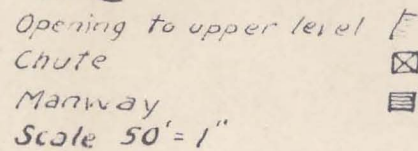 Opening to upper level
Chute
Manway
Scale 50'=1"